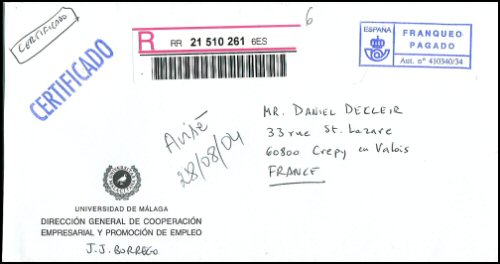 CERTIFICADO
CERTIFICADO
R
RR 21 510 261 6ES
6
ESPAÑA
FRANQUEO
PAGADO
Aut. nº 450340/34
MR. DANIEL DEKLEIR
33 rue St. Lazare
60800 Crepy en Valois
FRANCE
Avisé
28/08/04
UNIVERSIDAD DE MÁLAGA
DIRECCIÓN GENERAL DE COOPERACIÓN
EMPRESARIAL Y PROMOCIÓN DE EMPLEO
J.J. BORREGO